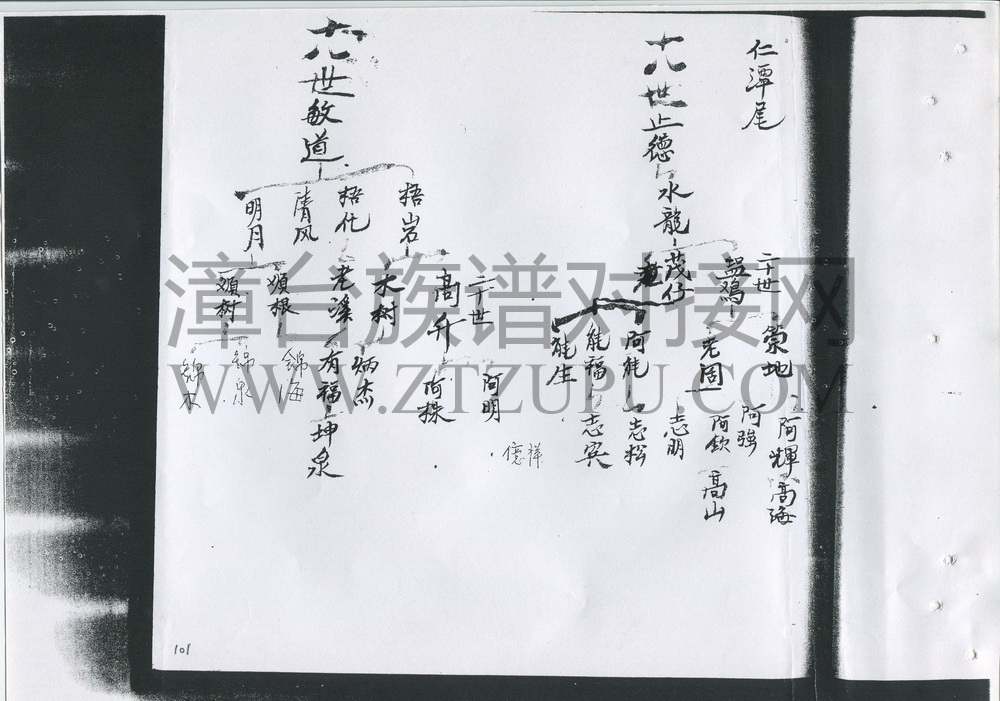 仁潭尾
十八世止德
水龍
二十世
茂仔
榮地
老固
阿能
能福
能生
阿輝
阿強
阿欽
志朋
志松
志宾
高海
高山
十八世敏道
梧岩
梧化
清风
明月
二十世
高升
木树
老溪
頭根
頭树
阿明
阿株
炳杰
有福
錦海
錦泉
錦木
坤泉
億祥
漳台族谱对接网
WWW.ZTZUPU.COM
101